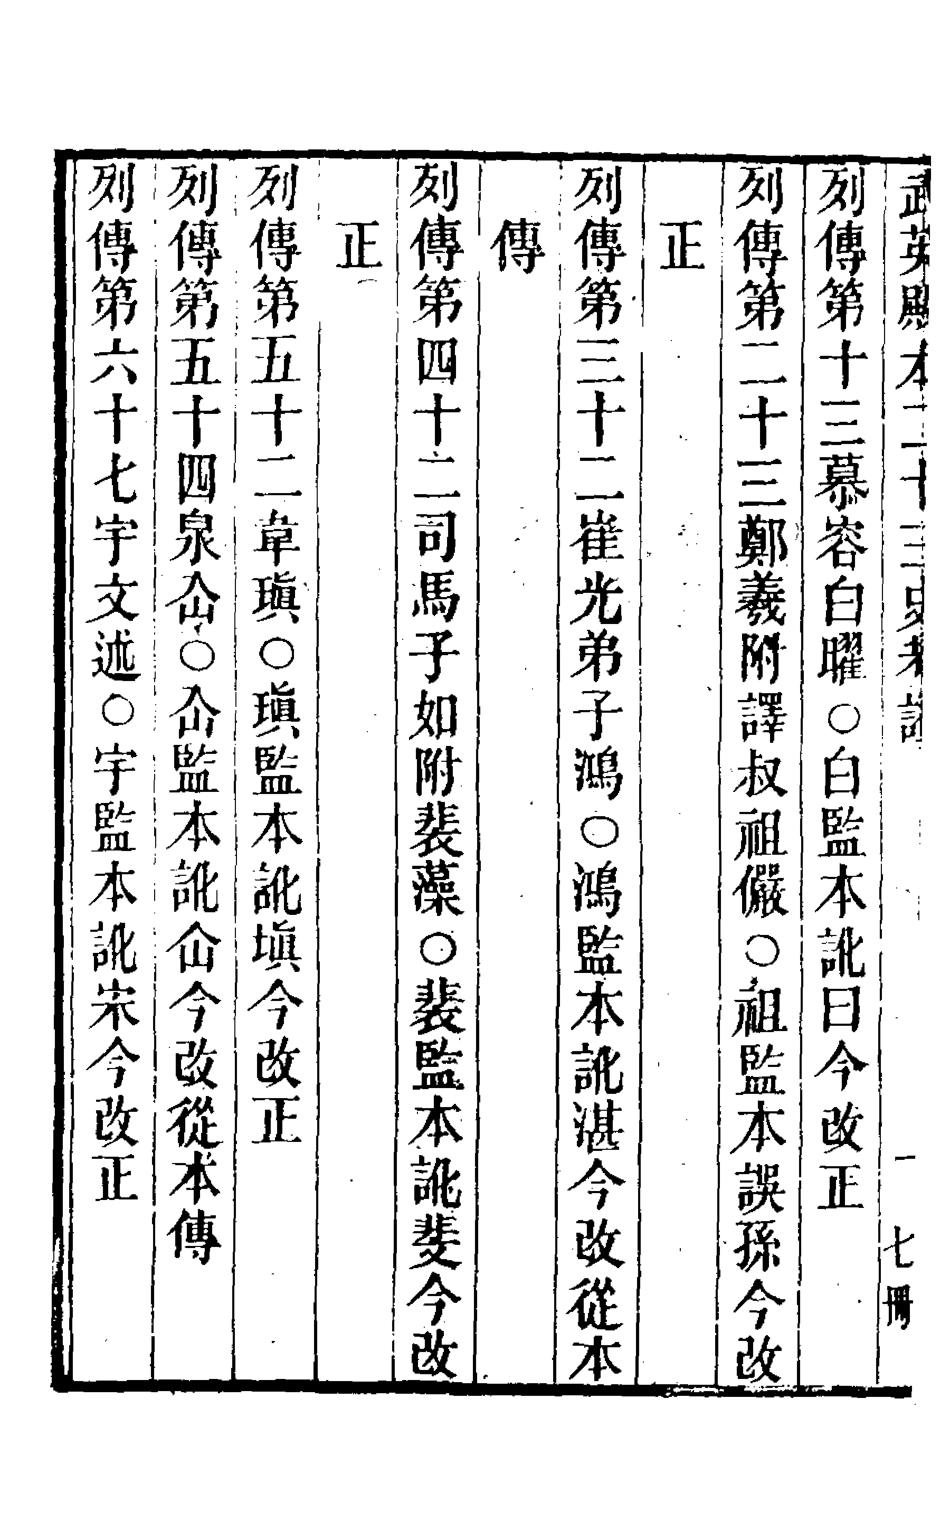 武英殿本二十三史考證 一 七冊
列傳第十三慕容白曜○白監本訛曰今改正
列傳第二十三鄭羲附譯叔祖儼○祖監本誤孫今改
正
列傳第三十二崔光弟子鴻○鴻監本訛湛今改從本
傳
列傳第四十二司馬子如附裴藻○裴監本訛斐今改
正
列傳第五十二韋瑱○瑱監本訛塡今改正
列傳第五十四泉仚○仚監本訛仚今改從本傳
列傳第六十七宇文述○宇監本訛宋今改正